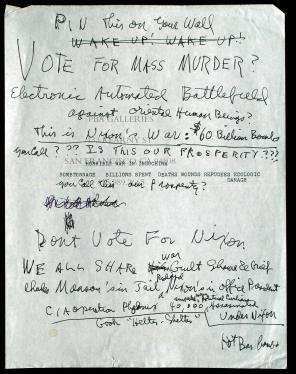 PIN This on Your Wall
WAKE UP! WAKE UP!
VOTE FOR MASS MURDER?
Electronic Automated Battlefield
against oriental Human Beings?
PBA GALLERIES
This is Nixon's War: $60 Billion Bombs
you call? ?? Is THIS OUR PROSPERITY???
SAN FRANCISCO
NIXON'S WAR IN INDOCHINA
BOMBTONNAGE BILLIONS SPENT DEATHS WOUNDS REFUGEES ECOLOGIC DAMAGE
you call this our Prosperity?
Dont Vote For Nixon
WE ALL SHARE War Guilt Shame & Grief
Manson's in Jail Nixon's in office Present
CIA operation Phoenix 40,000 assassinated
Gook "Helter-Skelter"
Under Nixon